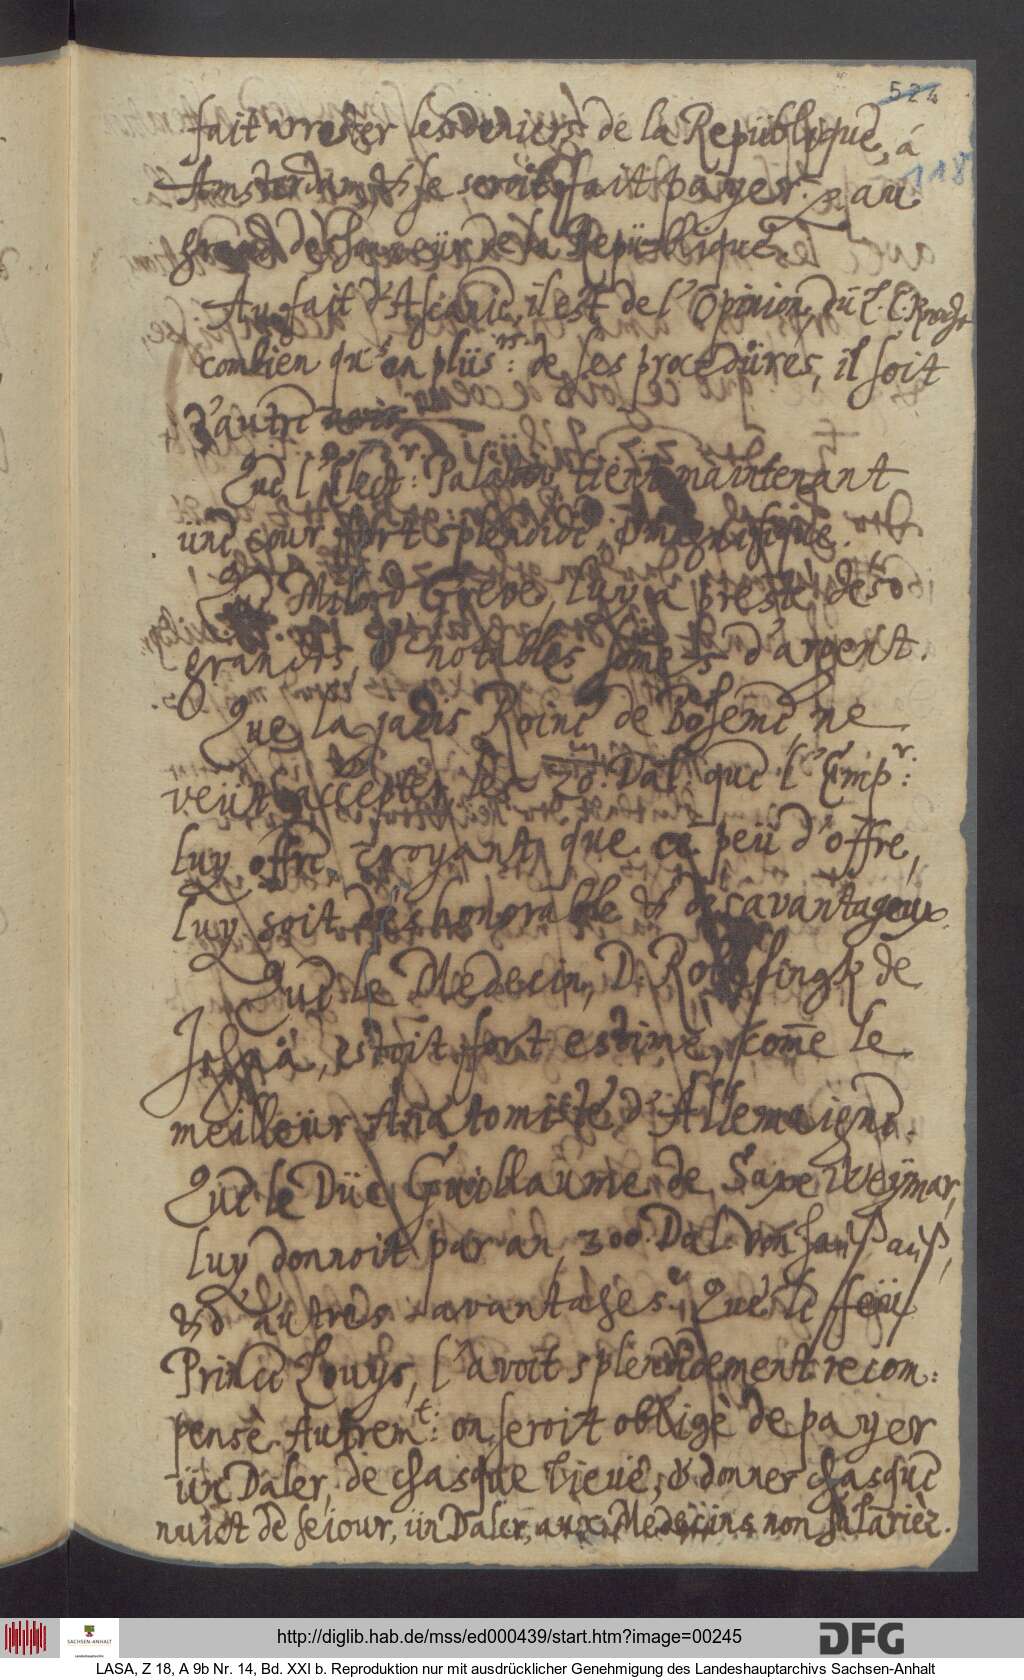 524
fait arrester les deniers de la Republique, á
118
Amsterdam, & se seroit fait payer: au
grand deshonneur de la Republique.
Au fait d'Ascanie, il est de l'Opinion, du
combien qu'en plüs:rs de ses procedüres, il soit
d'autre avis.
Que l'Elect:r Palatin tient maintenant
üne cour fort splendide, & magnifique.
Que Milord Greve, luy a presté de tres
grandes, & notables somes d'argent.
Que la jadis Roine de Boheme ne
veüt accepter les 20:m Dal: que l'Emp:r
luy offre, croyant, que ce peü d'offre,
luy soit deshonorable & desavantageux.
Que le Medecin, D: Rolfingk de
Jehna, estoit fort estimè, come le
meilleür Anatomiste d'Allemaigne.
Que le Düc Guillaume de Saxe Weymar,
luy donnoit par an, 300 Dal: von Hauß auß,
& d'autres avantages. Que le feü
Prince Louys, l'avoit splendidement recom:
pensè. Autrem:t on seroit obligè de payer
ün Daler, de chasque lieuë, & donner chasque
nuict de seiour, ün Daler, aux Medecins non salarièz.
http://diglib.hab.de/mss/ed000439/start.htm?image=00245
SACHSEN-ANHALT
DFG
LASA, Z 18, A 9b Nr. 14, Bd. XXI b. Reproduktion nur mit ausdrücklicher Genehmigung des Landeshauptarchivs Sachsen-Anhalt